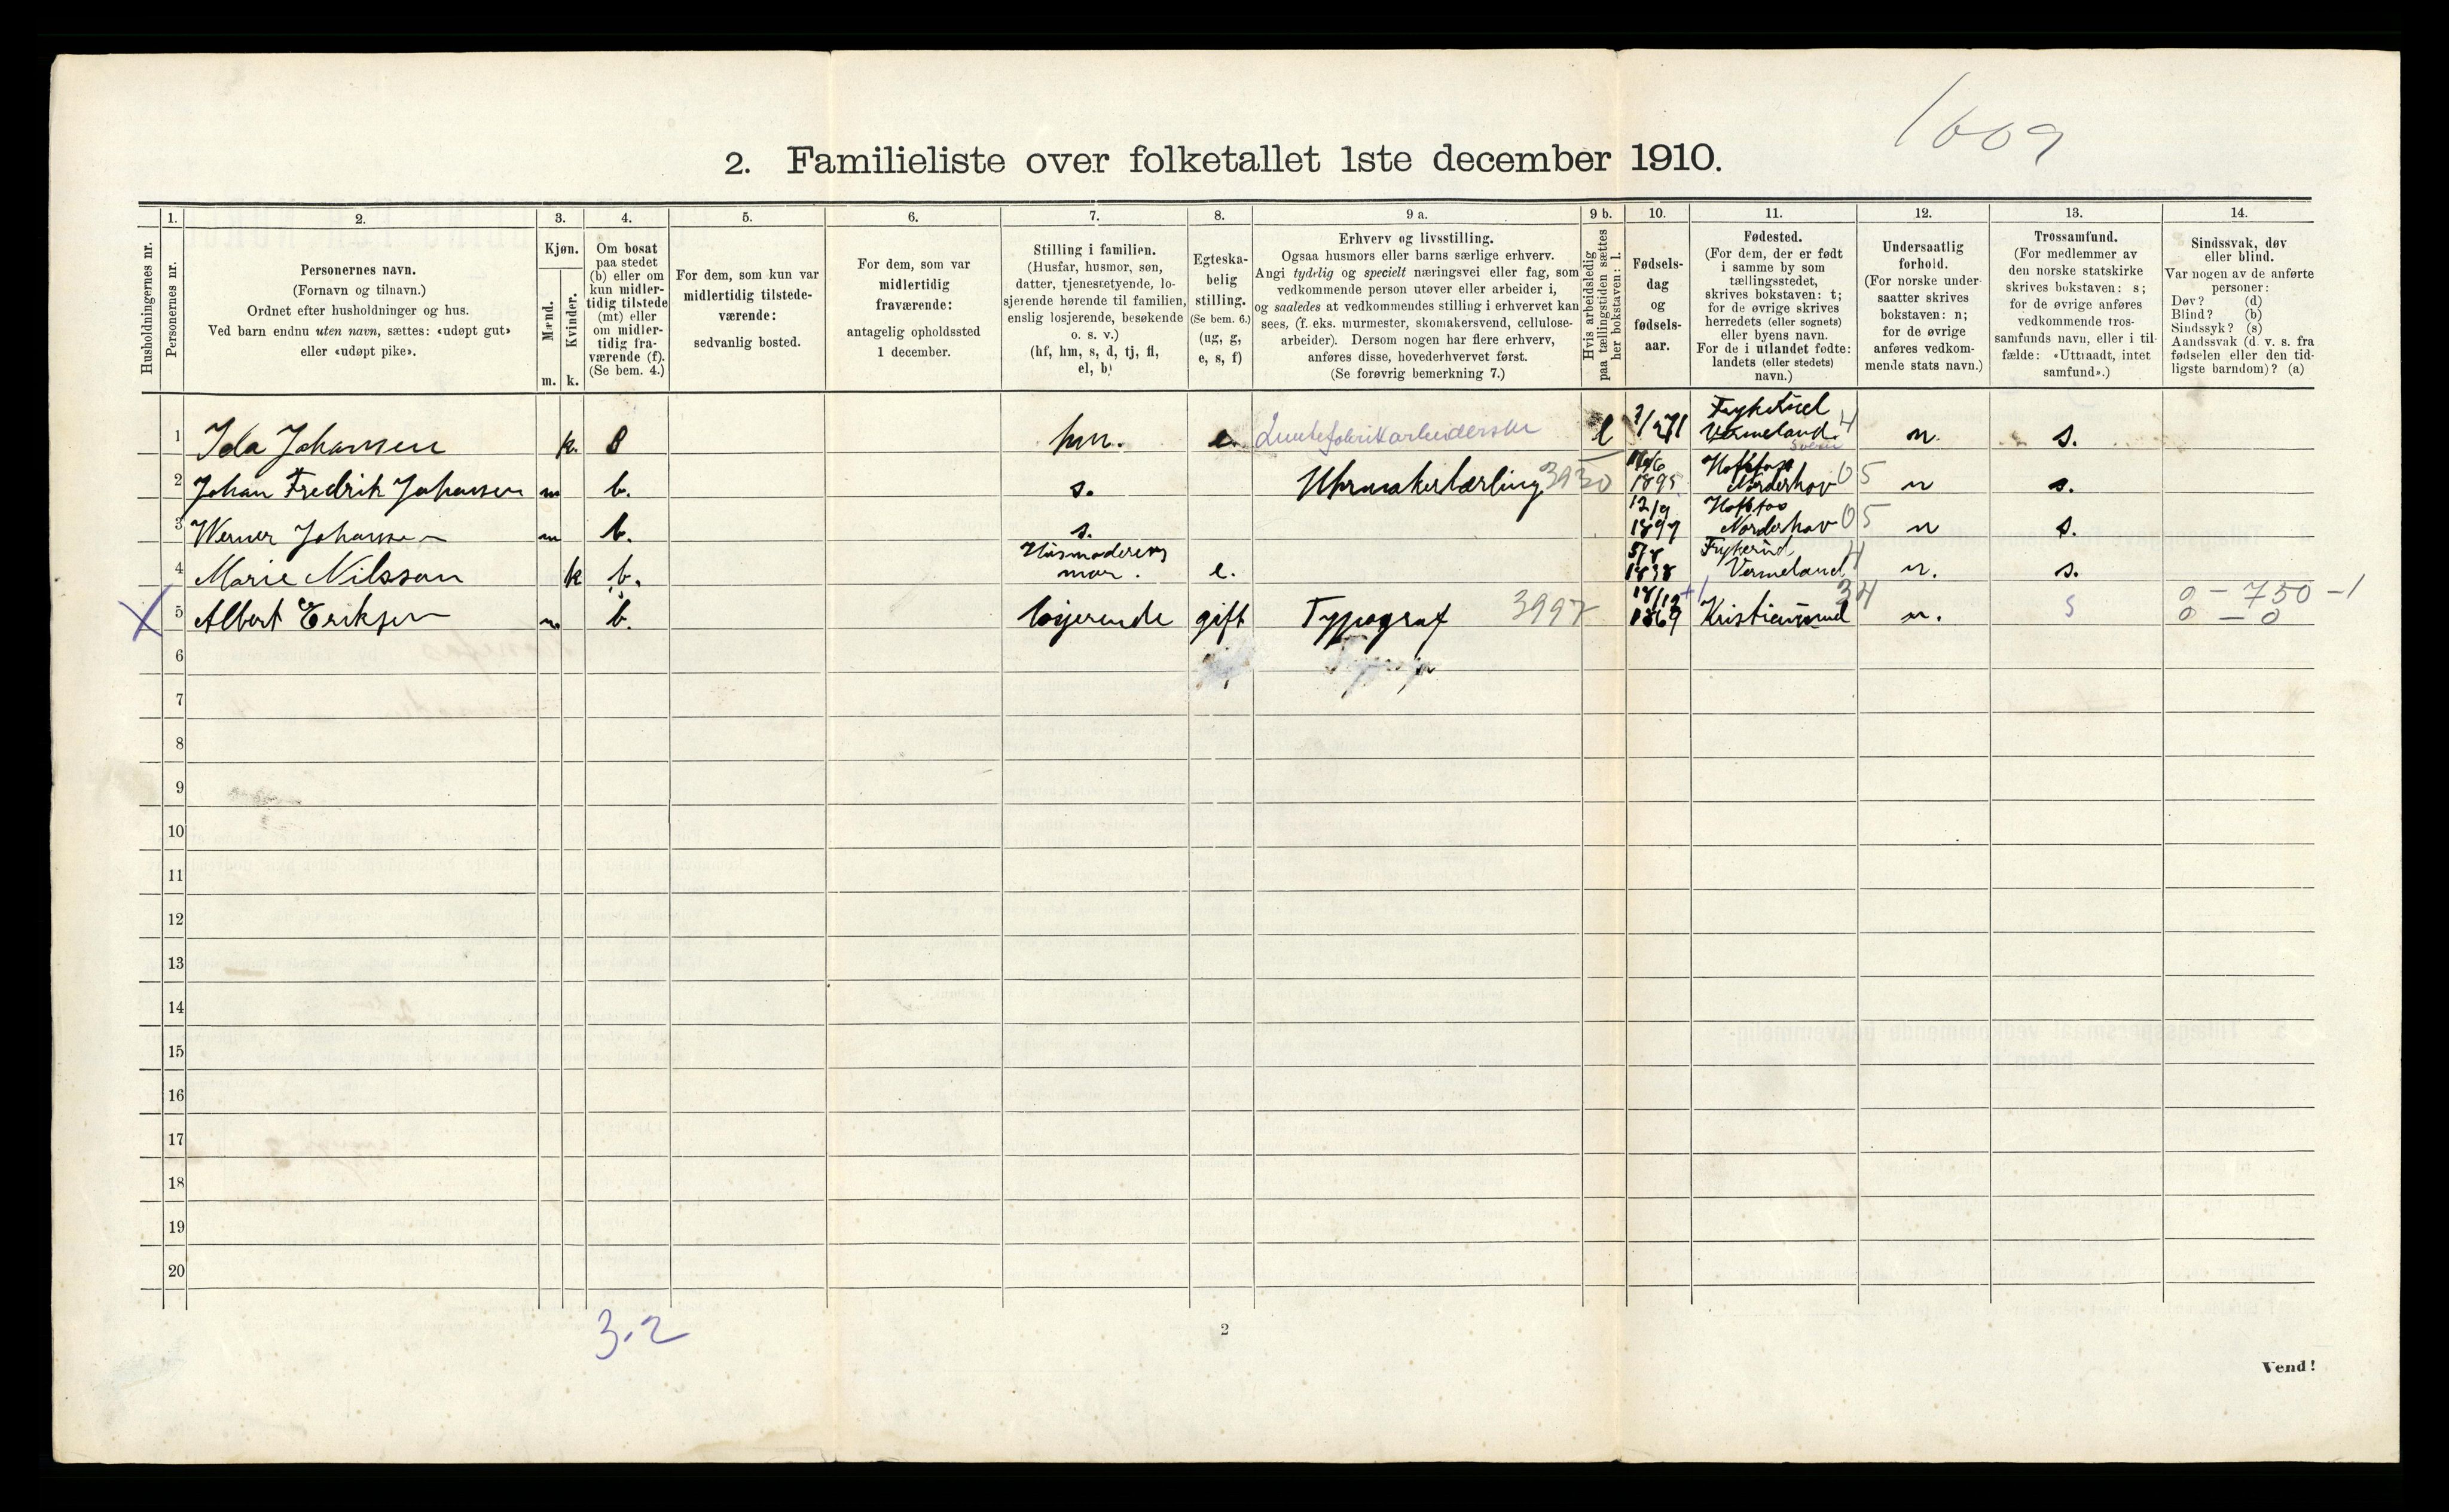 1009
2. Familieliste over folketallet 1ste december 1910.
Husholdningernes nr.
1.
Personernes nr.
2.
Personernes navn.
(Fornavn og tilnavn.)
Ordnet efter husholdninger og hus.
Ved barn endnu uten navn, sættes: «udøpt gut»
eller «udøpt pike».
3.
Kjøn.
Mænd.
Kvinder.
m. k.
4.
Om bosat
paa stedet
(b) eller om
kun midler-
tidig tilstede
(mt) eller
om midler-
tidig fra-
værende (f).
(Se bem. 4.)
5.
For dem, som kun var
midlertidig tilstede-
værende:
sedvanlig bosted.
6.
For dem, som var
midlertidig
fraværende:
antagelig opholdssted
1 december.
7.
Stilling i familien.
(Husfar, husmor, søn,
datter, tjenestetyende, lo-
sjerende hørende til familien,
enslig losjerende, besøkende
o. s. v.)
(hf, hm, s, d, tj, fl,
el, b)
8.
Egteska-
belig
stilling.
(Se bem. 6.)
(ug, g,
e, s, f)
9 a.
Erhverv og livsstilling.
Ogsaa husmors eller barns særlige erhverv.
Angi tydelig og specielt næringsvei eller fag, som
vedkommende person utøver eller arbeider i,
og saaledes at vedkommendes stilling i erhvervet kan
sees, (f. eks. murmester, skomakersvend, cellulose-
arbeider). Dersom nogen har flere erhverv,
anføres disse, hovederhvervet først.
(Se forøvrig bemerkning 7.)
9 b.
Hvis arbeidsledig
paa tællingstiden sættes
her bokstaven: l.
10.
Fødsels-
dag
og
fødsels-
aar.
11.
Fødested.
(For dem, der er født
i samme by som
tællingsstedet,
skrives bokstaven: t;
for de øvrige skrives
herredets (eller sognets)
eller byens navn.
For de i utlandet fødte:
landets (eller stedets)
navn.)
12.
Undersaatlig
forhold.
(For norske under-
saatter skrives
bokstaven: n;
for de øvrige
anføres vedkom-
mende stats navn.)
13.
Trossamfund.
(For medlemmer av
den norske statskirke
skrives bokstaven: s;
for de øvrige anføres
vedkommende tros-
samfunds navn, eller i til-
fælde: «Uttraadt, intet
samfund».)
14.
Sindssvak, døv
eller blind.
Var nogen av de anførte
personer:
Døv? (d)
Blind? (b)
Sindssyk? (s)
Aandssvak (d. v. s. fra
fødselen eller den tid-
ligste barndom)? (a)
1 Ida Johansen k. hm. e. l Vermeland 4 n. s.
2 Johan Fredrik Johansen m b. s. Uhrmakerlærling 3930 1895 Norderhov 05 n s.
3 Werner Johansen m b. s. 12/9 1897 Norderhov 05 n s.
4 Marie Nilsson k b. Husmoderens mor. e. 5/8 1838 Frykerud Vermeland 4 n. s.
X 5 Albert Eriksen m b. losjerende gift Typograf 3997 18/12 1869 +1 Kristiansund 34 n. s 0 - 750 - 1
0 - 0
6
7
8
9
10
11
12
13
14
15
16
17
18
19
20
3.2
2
Vend!